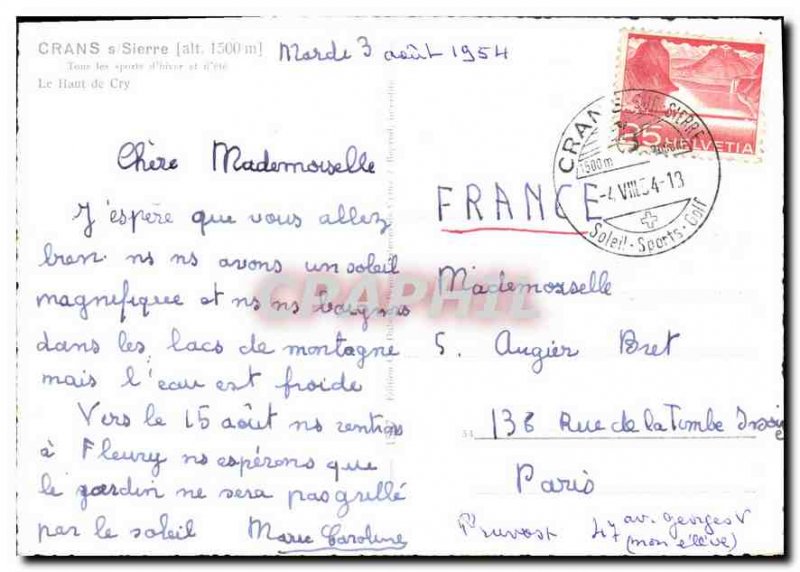 CRANS s/Sierre [alt. 1500 m]
Tous les sports d'hiver et d'été
Le Haut de Cry
Mardi 3 août 1954
Chère Mademoiselle
J'espère que vous allez
bien. ns ns avons un soleil
magnifique et ns ns baignons
dans les lacs de montagne
mais l'eau est froide
Vers le 15 août ns rentrons
à Fleury ns espérons que
le jardin ne sera pas grillé
par le soleil
Marie Caroline
FRANCE
Mademoiselle
S. Augier Bret
138 Rue de la Tombe Issoire
Paris
Pruvost 47 av. Georges V
(mon élève)
25 HELVETIA
CRANS SUR SIERRE
1500 m
-4.VIII.54-13
Soleil - Sports - Golf
CPAPHIL